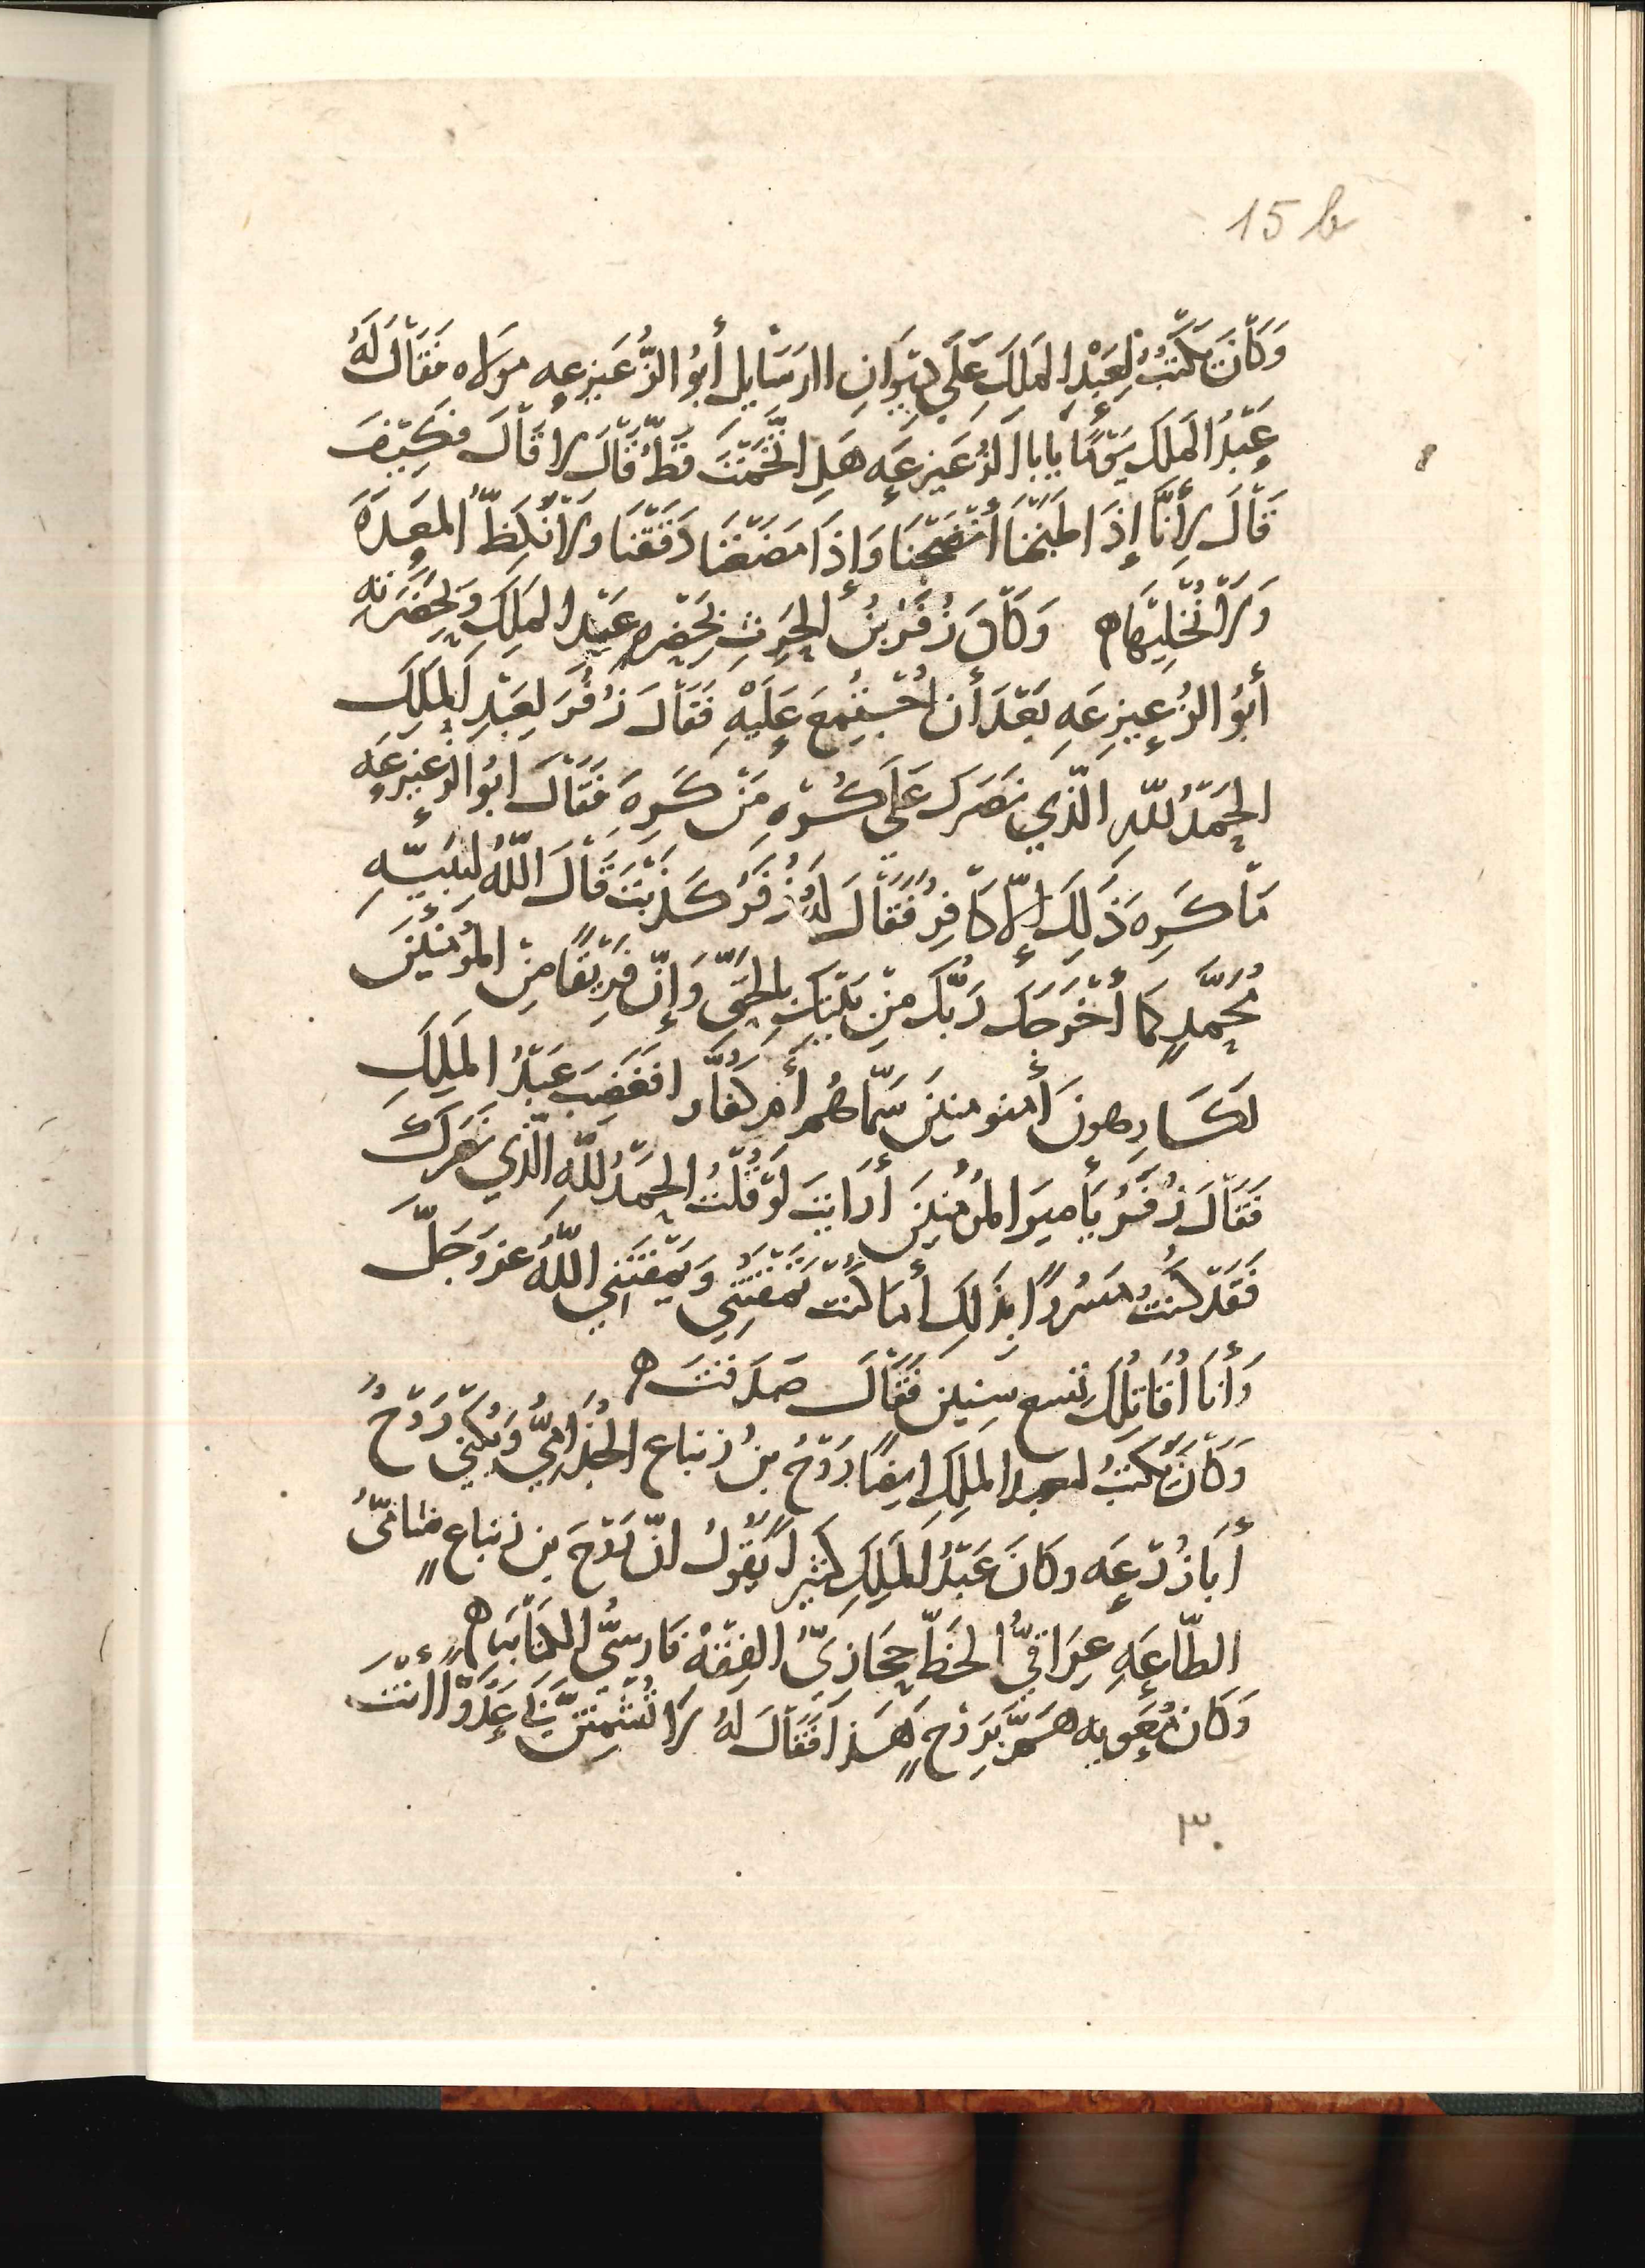 15 b
وَكَانَ يَكْتُبُ لِعَبْدِ المَلَكِ عَلَى دِيوَانِ الرَسَايِل أَبُو الزُّعَيزِعِه مَولاه فَقَالَ لَهُ
عَبْدُ المَلَكِ يَوْمًا يابا الزُعَيزِعَه هَلِ اتَّخَمْتَ قَطُّ قَالَ لا قَالَ فَكَيْفَ
قَالَ لأَنَّا إِذَا طَبَخْنَا أَنْضَجْنَا وَإِذَا مَضَغْنَا دَقَقْنَا وَلا نُكِظُّ المَعِدَهَ
وَلا نُخْلِيهَا ه وَكَانَ زُفَرُ بْنُ الحرِثِ بِحَضْرهِ عَبْدِ المَلِكِ وَبِحَضْرَتِهِ
أَبُو الزُعيزِعَهِ بَعْدَ أَن اجْتُمِعَ عَلَيْهِ فَقَالَ زُفَرُ لِعَبْدِ المَلِكِ
الحَمْدُ لِلَّهِ الَّذِي نَصَرَكَ عَلَى كُرْهِ مَنْ كَرِهَ فَقَالَ ابُو الزُعَيزِعَه
مَا كَرِهَ ذَلِكَ إِلاّ كَافِرٌ فَقَالَ لَهُ زُفَرُ كَذَبْتَ قَالَ اللَّهُ لِنَبِيِّهِ
مُحَمَّدٍ كَمَا أَخْرَجَكَ رَبُّكَ مِنْ بَيْتِكَ بِالحَقِّ وَإِنّ فَرِيْقًا مِنَ المُؤْمِنِينَ
لَكَارِهونَ أَمنومنِينَ سَمَّاهُم أَم كُفَّارا فَغَضِبَ عَبْدُ المَلِكِ
فَقَالَ زُفَرُ يَأميرَ المُؤمِنِينَ أَرَايتَ لَوْ قُلْتُ الحَمْدُ لِلَّهِ الَّذِي نَصَرَكَ
فَقَدْ كُنْتُ مَسْرُورًا بِذَلِكَ أَمَا كُنْتَ تَمْقُتُنِي وَيَمْقُتُنِي اللَّهُ عَز وَجَلَّ
وَأَنَا أُقَاتِلُكَ تِسع سِنِينَ فَقَالَ صَدَقْتَ ه
وَكَانَ يَكْتُبُ لعبد المَلِكِ ايضًا رَوْحُ بنُ زنباع الجُذَامِيُّ وَيُكْنَى رَوْحٌ
أَبَا زُرْعَه وكَانَ عَبْدُ المَلِكِ كَثِيراً يَقُولُ انّ رَوْحَ بن زنباعٍ شامِيُّ
الطَّاعَهِ عِرَاقِيُّ الخَطِّ حِجَازِيُّ الفِقْهِ فَارِسِيُّ الكتابه ه
وَكَان مُعَوِيه هَمَّ بِرَوْحٍ هَذا فَقَالَ لَهُ لا تُشْمِتَنَّ بِي عَدُوًّا أَنْتَ
٣٠